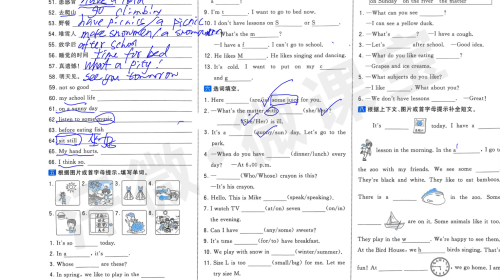 51. 患感冒 have a cold
52. 去爬山 go climbing
53. 野餐 have picnics / a picnic
54. 堆雪人 make snowmen / a snowman
55. 放学后 after school
56. 睡觉的时间 time for bed
57. 真遗憾! What a pity!
58. 明天见。 see you tomorrow
59. not so good
60. my school life
61. on a sunny day
62. listen to some music
63. before eating fish
64. sit still
65. My hand hurts.
66. I think so.
五、根据图片或首字母提示,填写单词。
1.
2.
3.
4.
5.
6.
7.
8.
1. It's so today.
2. In a , it's
3. Whose are these?
4. In spring, we like to play in the
9. I'm . I want to go to bed now.
10. I don't have lessons on S or S .
11. —What's the m
—I have a f . I can't go to school
12. He likes M . He likes singing and dancing.
13. It's cold. I want to put on my
and g
六、选词填空。
1. Here (are) some juice for you.
2. —What's the matter with (she/her)?
—(She/Her) is ill.
3. It's a (sunny/sun) day. Let's go to the
park.
4. —When do you have (dinner/lunch) every
day? —At 6:00 p.m.
5. (Who/Whose) crayon is this?
—It's his crayon.
6. Hello, This is Mike (speak/speaking).
7. I watch TV (at/on) seven (on/in)
the evening.
8. Can I have (any/some) sweets?
9. It's time (for/to) have breakfast.
10. We play with snow in (winter/summer).
11. Size L is too (small/big) for me. Let me
try size M.
on Sunday? on the river the matter
2. —What can you see?
—I can see a yellow duck.
3. —Let's after school. —Good idea.
4. —What do you like eating?
—Grapes and ice creams.
5. —What subjects do you like?
—I like . What about you?
6. —We don't have lessons . —Great!
八、根据上下文、图片或首字母提示补全短文。
It's today. I have a
lesson in the morning. In the a , I go
the zoo with my friends. We see some
They're black and white. They like to eat bamboo.
There is a in the zoo. Some
are on it. Some animals like it too.
They play in the w . We're happy to see them.
At the Bird House, we h birds singing. That's
fun! At , we go home.